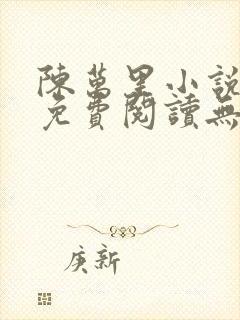 陳萬里小說
免費閱讀無
庚新